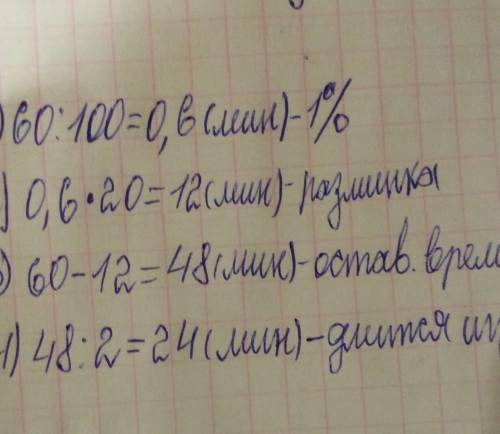 ) 60:100=0,6(мин)-1%
) 0,6•20=12(мин)-разминка
) 60-12=48(мин)-остав. врем
) 48:2=24(мин)-длится